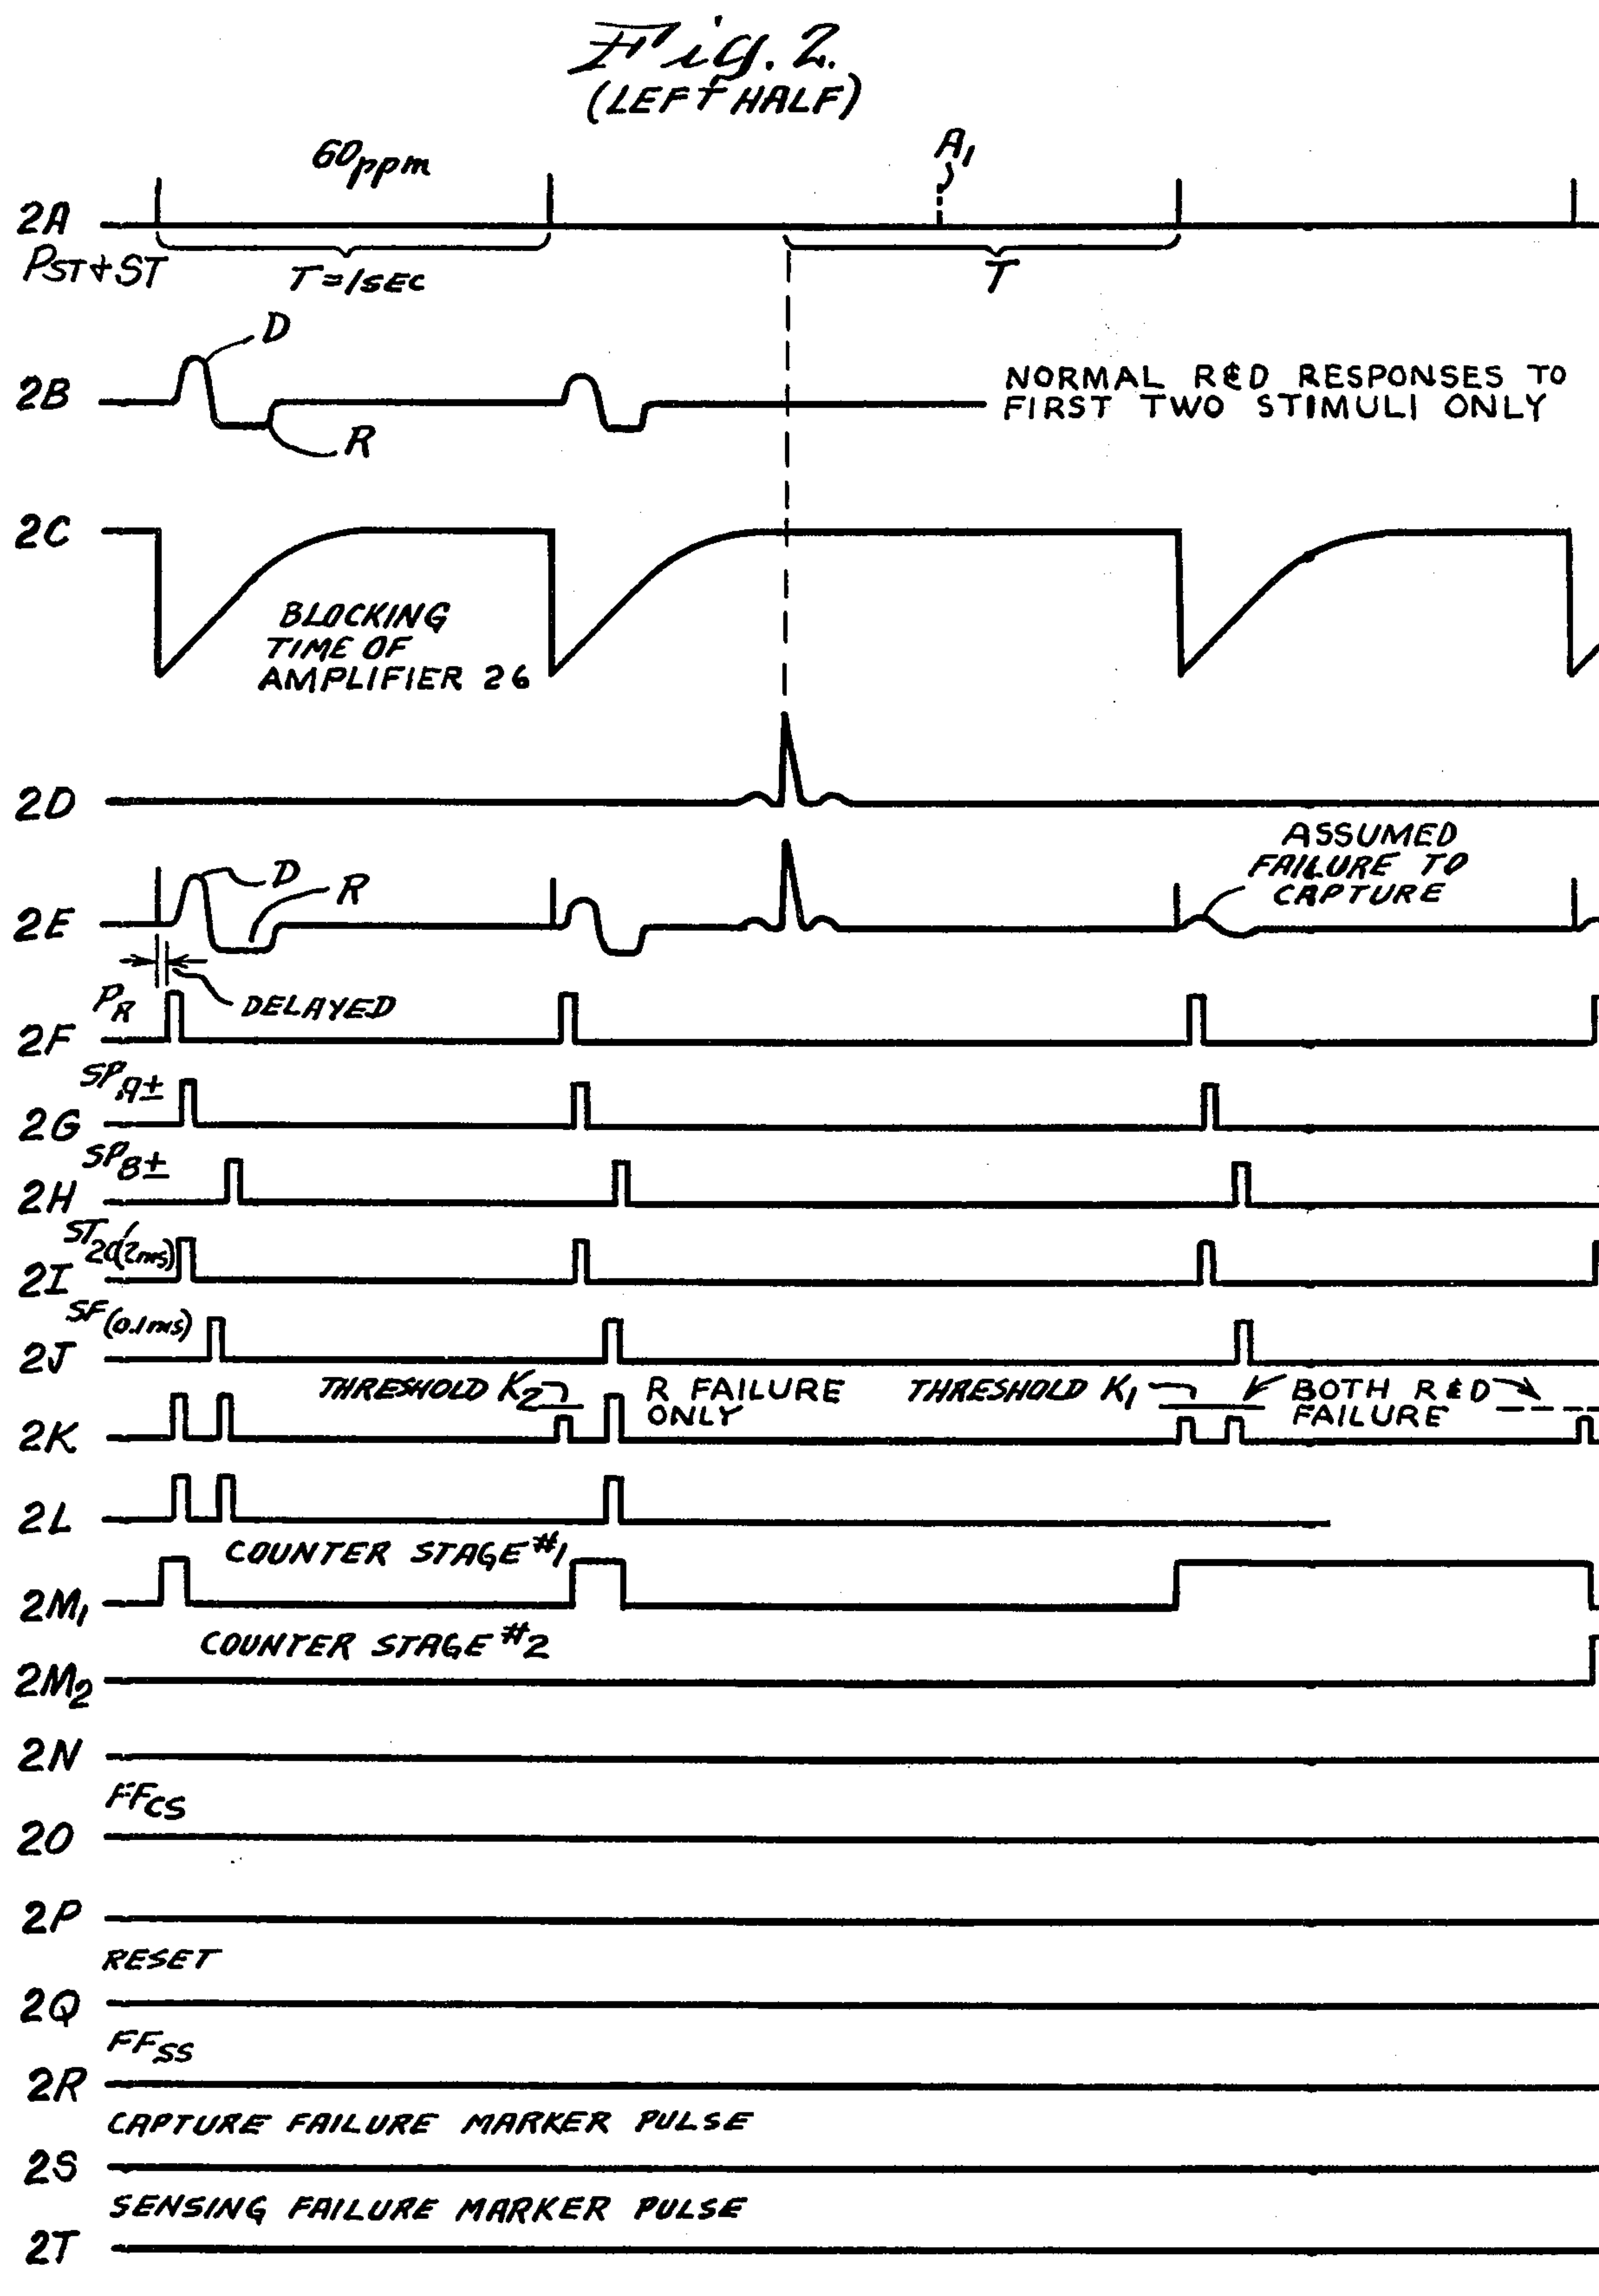 Fig. 2.
(LEFT HALF)
60ppm
A1
2A
PST+ST
T=1SEC
T
D
2B
NORMAL R&D RESPONSES TO
FIRST TWO STIMULI ONLY
R
2C
BLOCKING
TIME OF
AMPLIFIER 26
2D
ASSUMED
FAILURE TO
CAPTURE
D
R
2E
PR
DELAYED
2F
SPA±
2G
SPB±
2H
2I
SF(0.1ms)
2J
THRESHOLD K2
R FAILURE
ONLY
THRESHOLD K1
BOTH R&D
FAILURE
2K
2L
COUNTER STAGE #1
2M1
COUNTER STAGE #2
2M2
2N
FFCS
2O
2P
RESET
2Q
FFSS
2R
CAPTURE FAILURE MARKER PULSE
2S
SENSING FAILURE MARKER PULSE
2T